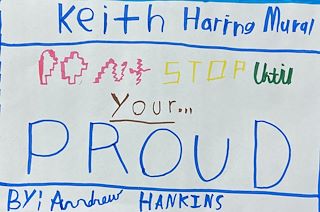 Keith Haring Mural
DON't STOP Until
Your...
PROUD
BY: Andrew HANKINS